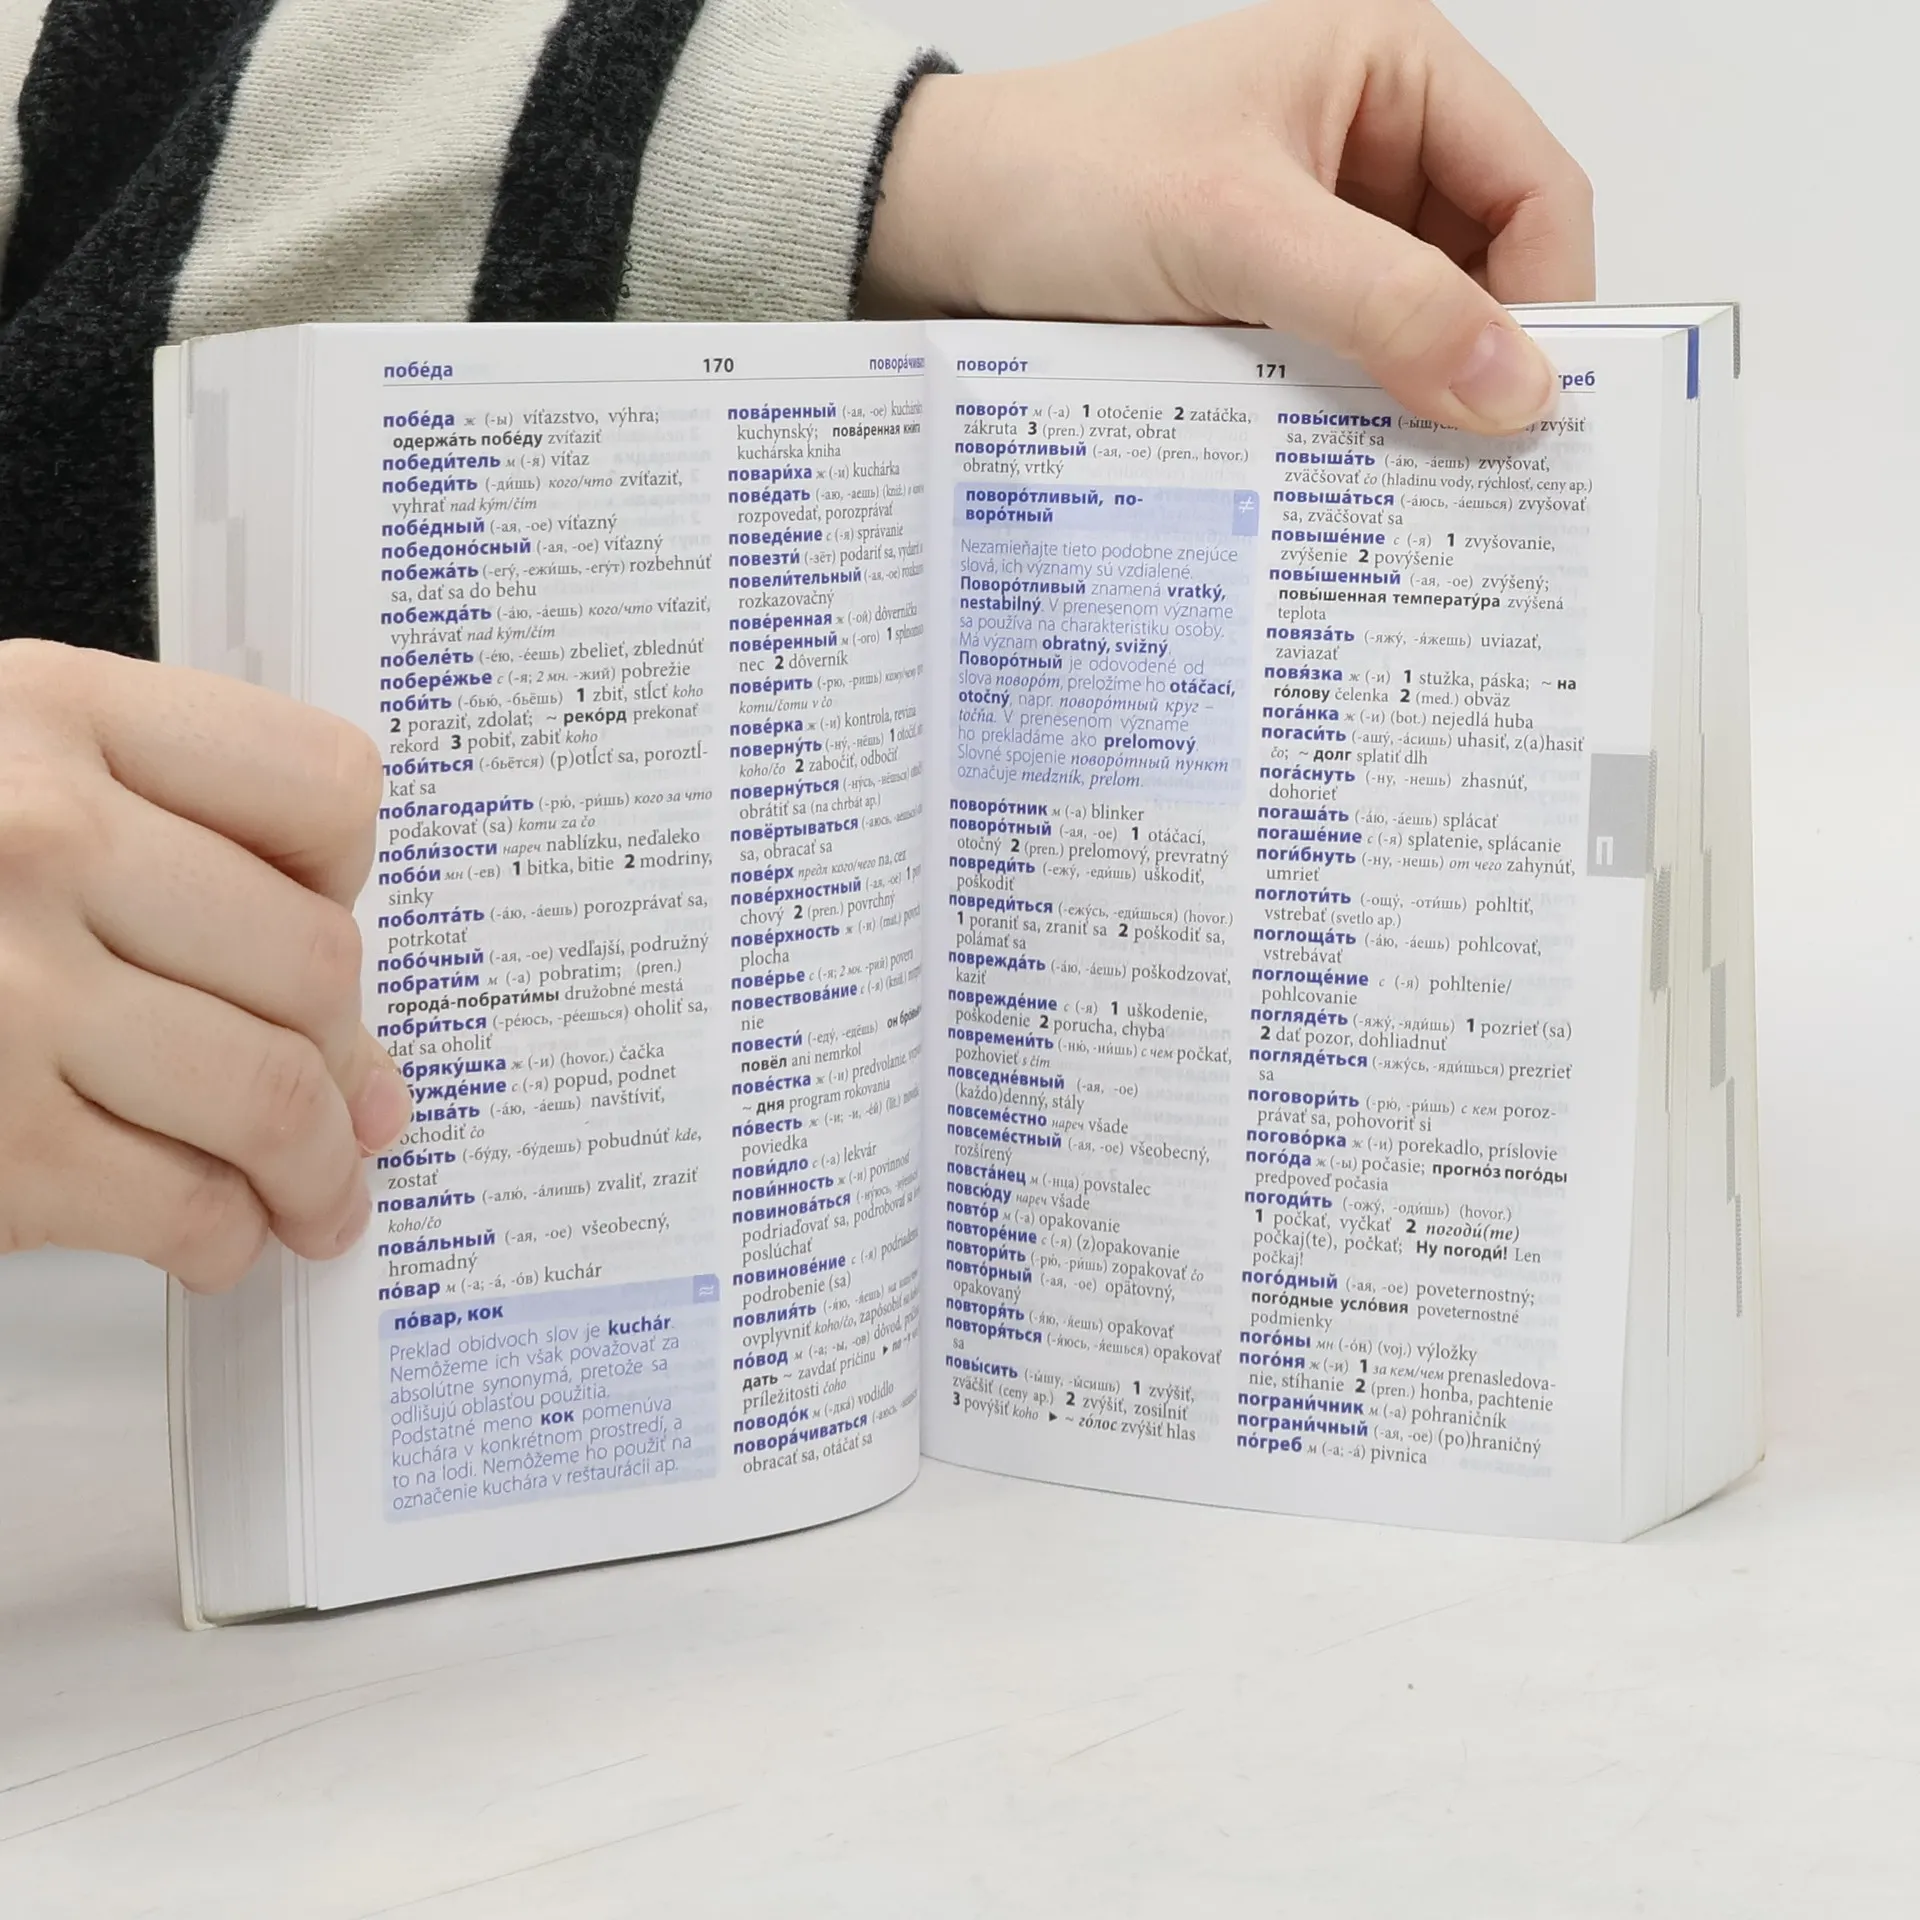 побе́да 170
побе́да ж (-ы) víťazstvo, výhra;
одержа́ть побе́ду zvíťaziť
победи́тель м (-я) víťaz
победи́ть (-ди́шь) кого/что zvíťaziť,
vyhrať nad kým/čím
побе́дный (-ая, -ое) víťazný
победоно́сный (-ая, -ое) víťazný
побежа́ть (-егу́, -ежи́шь, -егу́т) rozbehnúť
sa, dať sa do behu
побежда́ть (-а́ю, -а́ешь) кого/что víťaziť,
vyhrávať nad kým/čím
побеле́ть (-е́ю, -е́ешь) zbelieť, zblednúť
побере́жье с (-я; 2 мн. -жий) pobrežie
поби́ть (-бью́, -бьёшь) 1 zbiť, stĺcť koho
2 poraziť, zdolať; ~ реко́рд prekonať
rekord 3 pobiť, zabiť koho
поби́ться (-бьётся) (p)otĺcť sa, poroztĺ-
kať sa
поблагодари́ть (-рю́, -ри́шь) кого за что
poďakovať (sa) komu za čo
побли́зости нареч nablízku, neďaleko
побо́и мн (-ев) 1 bitka, bitie 2 modriny,
sinky
поболта́ть (-а́ю, -а́ешь) porozprávať sa,
potrkotať
побо́чный (-ая, -ое) vedľajší, podružný
побрати́м м (-а) pobratim; (pren.)
города́-побрати́мы družobné mestá
побри́ться (-ре́юсь, -ре́ешься) oholiť sa,
dať sa oholiť
бряку́шка ж (-и) (hovor.) čačka
бужде́ние с (-я) popud, podnet
ыва́ть (-а́ю, -а́ешь) navštíviť,
ochodiť čo
побы́ть (-бу́ду, -бу́дешь) pobudnúť kde,
zostať
повали́ть (-алю́, -а́лишь) zvaliť, zraziť
koho/čo
пова́льный (-ая, -ое) všeobecný,
hromadný
по́вар м (-а; -á, -о́в) kuchár
по́вар, кок ≈
Preklad obidvoch slov je kuchár.
Nemôžeme ich však považovať za
absolútne synonymá, pretože sa
odlišujú oblasťou použitia.
Podstatné meno кок pomenúva
kuchára v konkrétnom prostredí, a
to na lodi. Nemôžeme ho použiť na
označenie kuchára v reštaurácii ap.
пова́ренный (-ая, -ое)
kuchynský; пова́ренная книга
kuchárska kniha
повари́ха ж (-и) kuchárka
пове́дать (-аю, -аешь) (kniž.)
rozpovedať, porozprávať
поведе́ние с (-я) správanie
повезти́ (-зёт) podariť sa,
повели́тельный (-ая, -ое)
rozkazovačný
пове́ренная ж (-ой) dôverníčka
пове́ренный м (-ого) 1
nec 2 dôverník
пове́рить (-рю, -ришь)
komu/čomu v čo
пове́рка ж (-и) kontrola, revízia
поверну́ть (-ну́, -нёшь) 1
koho/čo 2 zabočiť, odbočiť
поверну́ться (-ну́сь, -нёшься)
obrátiť sa (na chrbát ap.)
повёртываться
sa, obracať sa
пове́рх предл кого/чего na, cez
пове́рхностный (-ая, -ое) 1
chový 2 (pren.) povrchný
пове́рхность ж (-и) (mat.)
plocha
пове́рье с (-я; 2 мн. -рий) povera
повествова́ние с (-я) (kniž.)
nie
повести́ (-еду́, -едёшь) он
повёл ani nemrkol
пове́стка ж (-и) predvolanie,
~ дня program rokovania
по́весть ж (-и; -и, -е́й) (lit.)
poviedka
пови́дло с (-а) lekvár
пови́нность ж (-и) povinnosť
повинова́ться
podriaďovať sa, podrobovať sa
poslúchať
повинове́ние с (-я)
podrobenie (sa)
повлия́ть (-я́ю, -я́ешь)
ovplyvniť koho/čo,
по́вод м (-а; -ы, -ов) dôvod,
дать ~ zavdať príčinu
príležitosti čoho
поводо́к м (-дка́) vodidlo
повора́чиваться
obracať sa, otáčať sa
поворо́т 171 греб
поворо́т м (-а) 1 otočenie 2 zatáčka,
zákruta 3 (pren.) zvrat, obrat
поворо́тливый (-ая, -ое) (pren., hovor.)
obratný, vrtký
поворо́тливый, по- ≠
воро́тный
Nezamieňajte tieto podobne znejúce
slová, ich významy sú vzdialené.
Поворо́тливый znamená vratký,
nestabilný. V prenesenom význame
sa používa na charakteristiku osoby.
Má význam obratný, svižný.
Поворо́тный je odovodené od
slova поворо́т, preložíme ho otáčací,
otočný, napr. поворо́тный круг –
točňa. V prenesenom význame
ho prekladáme ako prelomový.
Slovné spojenie поворо́тный пункт
označuje medzník, prelom.
поворо́тник м (-а) blinker
поворо́тный (-ая, -ое) 1 otáčací,
otočný 2 (pren.) prelomový, prevratný
повреди́ть (-ежу́, -еди́шь) uškodiť,
poškodiť
повреди́ться (-ежу́сь, -еди́шься) (hovor.)
1 poraniť sa, zraniť sa 2 poškodiť sa,
polámať sa
поврежда́ть (-а́ю, -а́ешь) poškodzovať,
kaziť
поврежде́ние с (-я) 1 uškodenie,
poškodenie 2 porucha, chyba
повремени́ть (-ню́, -ни́шь) с чем počkať,
pozhovieť s čím
повседне́вный (-ая, -ое)
(každo)denný, stály
повсеме́стно нареч všade
повсеме́стный (-ая, -ое) všeobecný,
rozšírený
повста́нец м (-нца) povstalec
повсю́ду нареч všade
повто́р м (-а) opakovanie
повторе́ние с (-я) (z)opakovanie
повтори́ть (-рю́, -ри́шь) zopakovať čo
повто́рный (-ая, -ое) opätovný,
opakovaný
повторя́ть (-я́ю, -я́ешь) opakovať
повторя́ться (-я́юсь, -я́ешься) opakovať
sa
повы́сить (-ы́шу, -ы́сишь) 1 zvýšiť,
zväčšiť (ceny ap.) 2 zvýšiť, zosilniť
3 povýšiť koho ► ~ го́лос zvýšiť hlas
повы́ситься zvýšiť
sa, zväčšiť sa
повыша́ть (-а́ю, -а́ешь) zvyšovať,
zväčšovať čo (hladinu vody, rýchlosť, ceny ap.)
повыша́ться (-а́юсь, -а́ешься) zvyšovať
sa, zväčšovať sa
повыше́ние с (-я) 1 zvyšovanie,
zvýšenie 2 povýšenie
повы́шенный (-ая, -ое) zvýšený;
повы́шенная температу́ра zvýšená
teplota
повяза́ть (-яжу́, -я́жешь) uviazať,
zaviazať
повя́зка ж (-и) 1 stužka, páska; ~ на
го́лову čelenka 2 (med.) obväz
пога́нка ж (-и) (bot.) nejedlá huba
погаси́ть (-ашу́, -а́сишь) uhasiť, z(a)hasiť
čo; ~ долг splatiť dlh
пога́снуть (-ну, -нешь) zhasnúť,
dohorieť
погаша́ть (-а́ю, -а́ешь) splácať
погаше́ние с (-я) splatenie, splácanie
поги́бнуть (-ну, -нешь) от чего zahynúť,
umrieť
поглоти́ть (-ощу́, -о́тишь) pohltiť,
vstrebať (svetlo ap.)
поглоща́ть (-а́ю, -а́ешь) pohlcovať,
vstrebávať
поглоще́ние с (-я) pohltenie/
pohlcovanie
погляде́ть (-яжу́, -яди́шь) 1 pozrieť (sa)
2 dať pozor, dohliadnuť
погляде́ться (-яжу́сь, -яди́шься) prezrieť
sa
поговори́ть (-рю́, -ри́шь) с кем poroz-
právať sa, pohovoriť si
погово́рка ж (-и) porekadlo, príslovie
пого́да ж (-ы) počasie; прогно́з пого́ды
predpoveď počasia
погоди́ть (-ожу́, -оди́шь) (hovor.)
1 počkať, vyčkať 2 погоди́(те)
počkaj(te), počkať; Ну погоди́! Len
počkaj!
пого́дный (-ая, -ое) poveternostný;
пого́дные усло́вия poveternostné
podmienky
пого́ны мн (-о́н) (voj.) výložky
пого́ня ж (-и) 1 за кем/чем prenasledova-
nie, stíhanie 2 (pren.) honba, pachtenie
пограни́чник м (-а) pohraničník
пограни́чный (-ая, -ое) (po)hraničný
по́греб м (-а; -á) pivnica
П